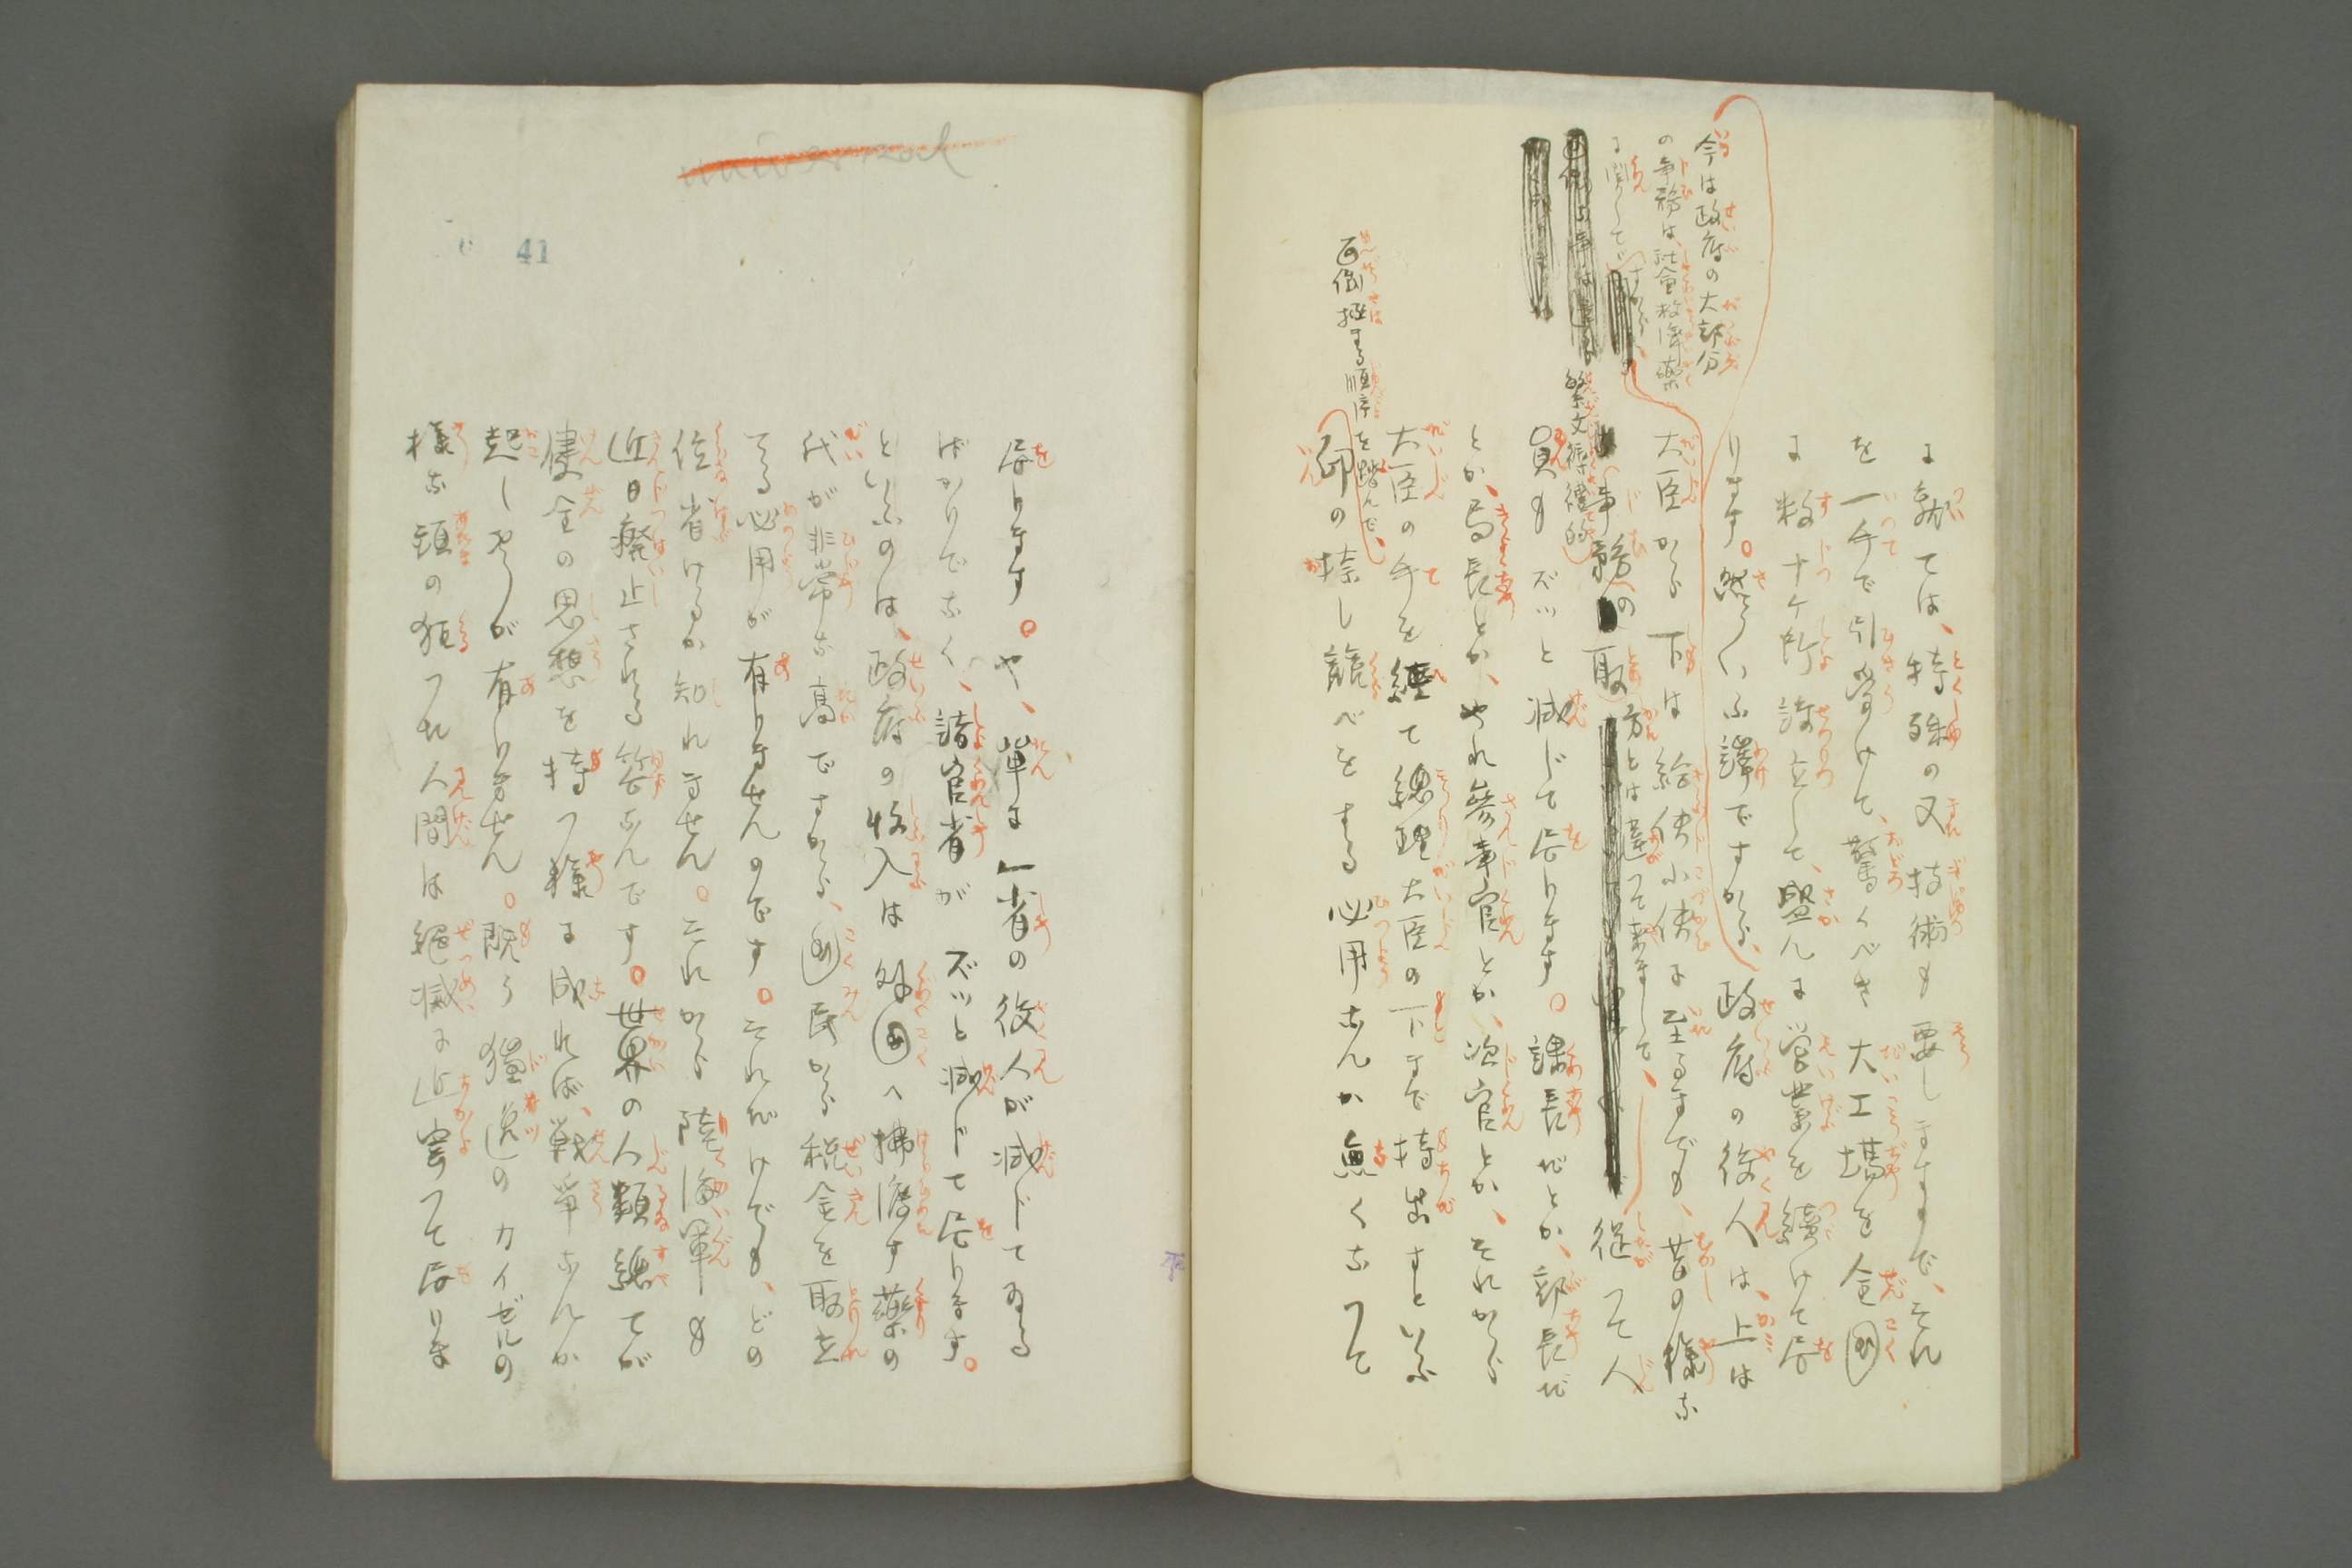 に就ては、特殊の又技術も要しますので、それ
を一手で引受けて、驚くべき大工場を全国
に数十ケ所設立して、盛んに営業を続けて居
ります。然ういふ譯ですから、政府の役人は、上は
今は政府の大部分
の事務は、社会救済薬
に関して
ですから、
大臣から下は給仕小使に至るまでも、昔の様な
繁文褥礼的
事務の取方とは違つて来まして、従つて人
員もズツと減じて居ります。課長だとか、部長だ
とか、局長とか、やれ参事官とか、次官とか、それから
大臣の手を経て総理大臣の下まで持出すといふ
面倒極まる順序を踏んで、
御の捺し競べをする必用なんか無くなつて
universal
41
居ります。や、単に一省の役人が減じてゐる
ばかりでなく、諸官省がズツと減じて居ります。
といふのは、政府の収入は外国へ払渡す薬の
代が非常な高ですから、国民から税金を取立
てる必用が有りませんのです。それだけでも、どの
位省けるか知れません。それから陸海軍も
近日廃止される筈なんです。世界の人類総てが
健全の思想を持つ様に成れば、戦争なんか
起しやうが有りません。既う獨逸のカイゼルの
様な頭の狂つた人間は絶滅に近寄つて居りま